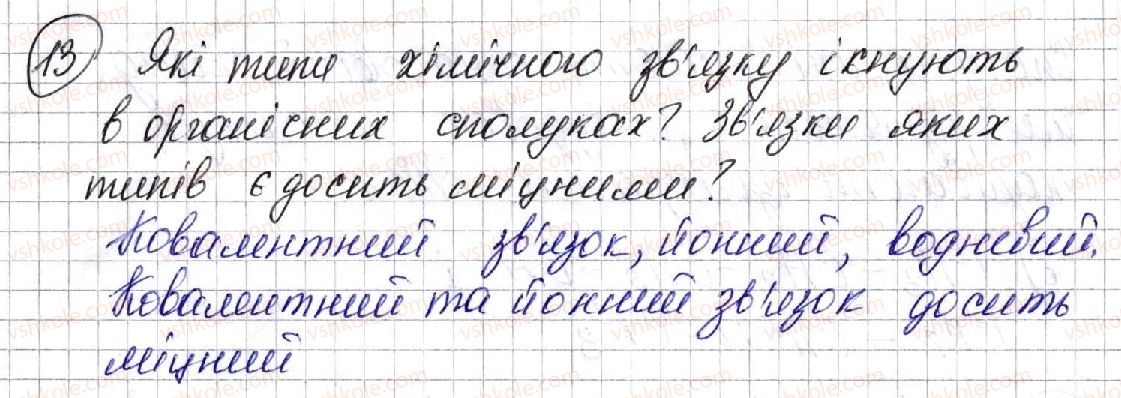 13 Які типи хімічного зв'язку існують
в органісних сполуках? Зв'язки яких
типів є досить міцними?
Ковалентний зв'язок, йонний, водневий.
Ковалентний та йонний зв'язок досить
міцний